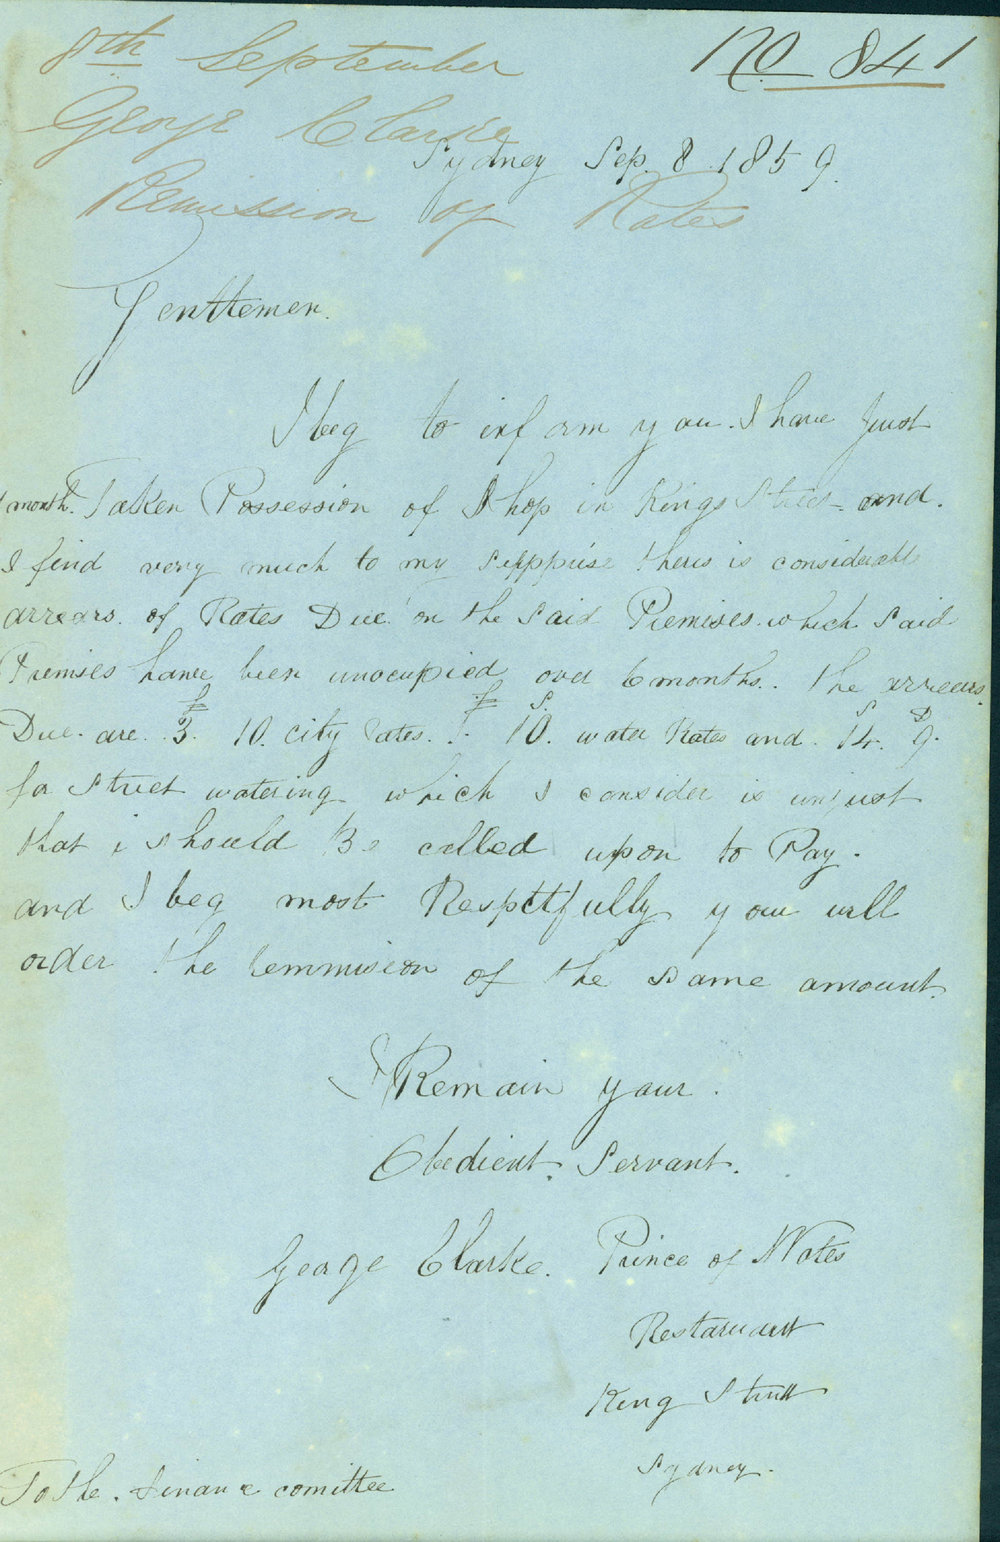 No 841
8th September
George Clarke
Remission of Rates
Sydney Sep. 8. 1859.
Gentlemen.
I beg to inform you. I have Just
month. Taken Possession of Shop in Kings Street and.
I find very much to my theres is considerable
arrears. of Rates Due on the Said Premises. which Said
Premises have been unocupied over 6 months.. the arrears.
Due. are. £3. 10. City Rates. £1. 10 S. water Rates and. 14 S. 9 D.
for Street watering which I consider is unjust
that i should Be called upon to Pay.
and I beg most Resptfully you will
order the remmision of the same amount.
I Remain your.
Obedient. Servant.
George Clarke. Prince of Wales
Restaruant
King Street
Sydney.
To the. Finance comittee